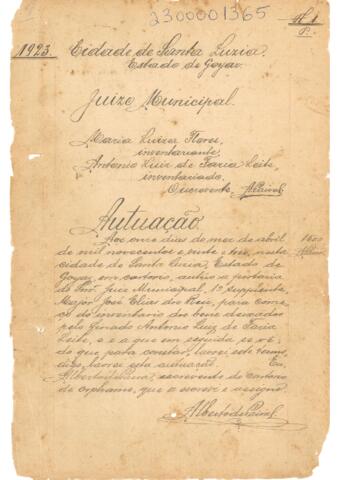 2300001365
Fl. 1
P.
1923. Cidade de Santa Luzia.
Estado de Goyaz.
Juizo Municipal.
Maria Luiza Flores,
inventariante.
Antonio Luiz de Faria Leite,
inventariado.
O escrevente, APaiva
Autuação
Aos onze dias do mez de abril
de mil novecentos e vinte e tres, nesta
cidade de Santa Luzia, Estado de
Goyaz, em cartorio, autúo a portaria
do Snr. Juiz Municipal, 1º Supplente,
Major José Elias dos Reis, para come-
ço do inventario dos bens deixados
pelo finado Antonio Luiz de Faria
Leite, e é a que em seguida se vê;
do que para constar, lavrei este termo,
digo, lavrei esta autuação. Eu,
Alberto de Paiva, escrevente do cartorio
de orphams, que o escrevi e assigno.
Alberto de Paiva.
1600